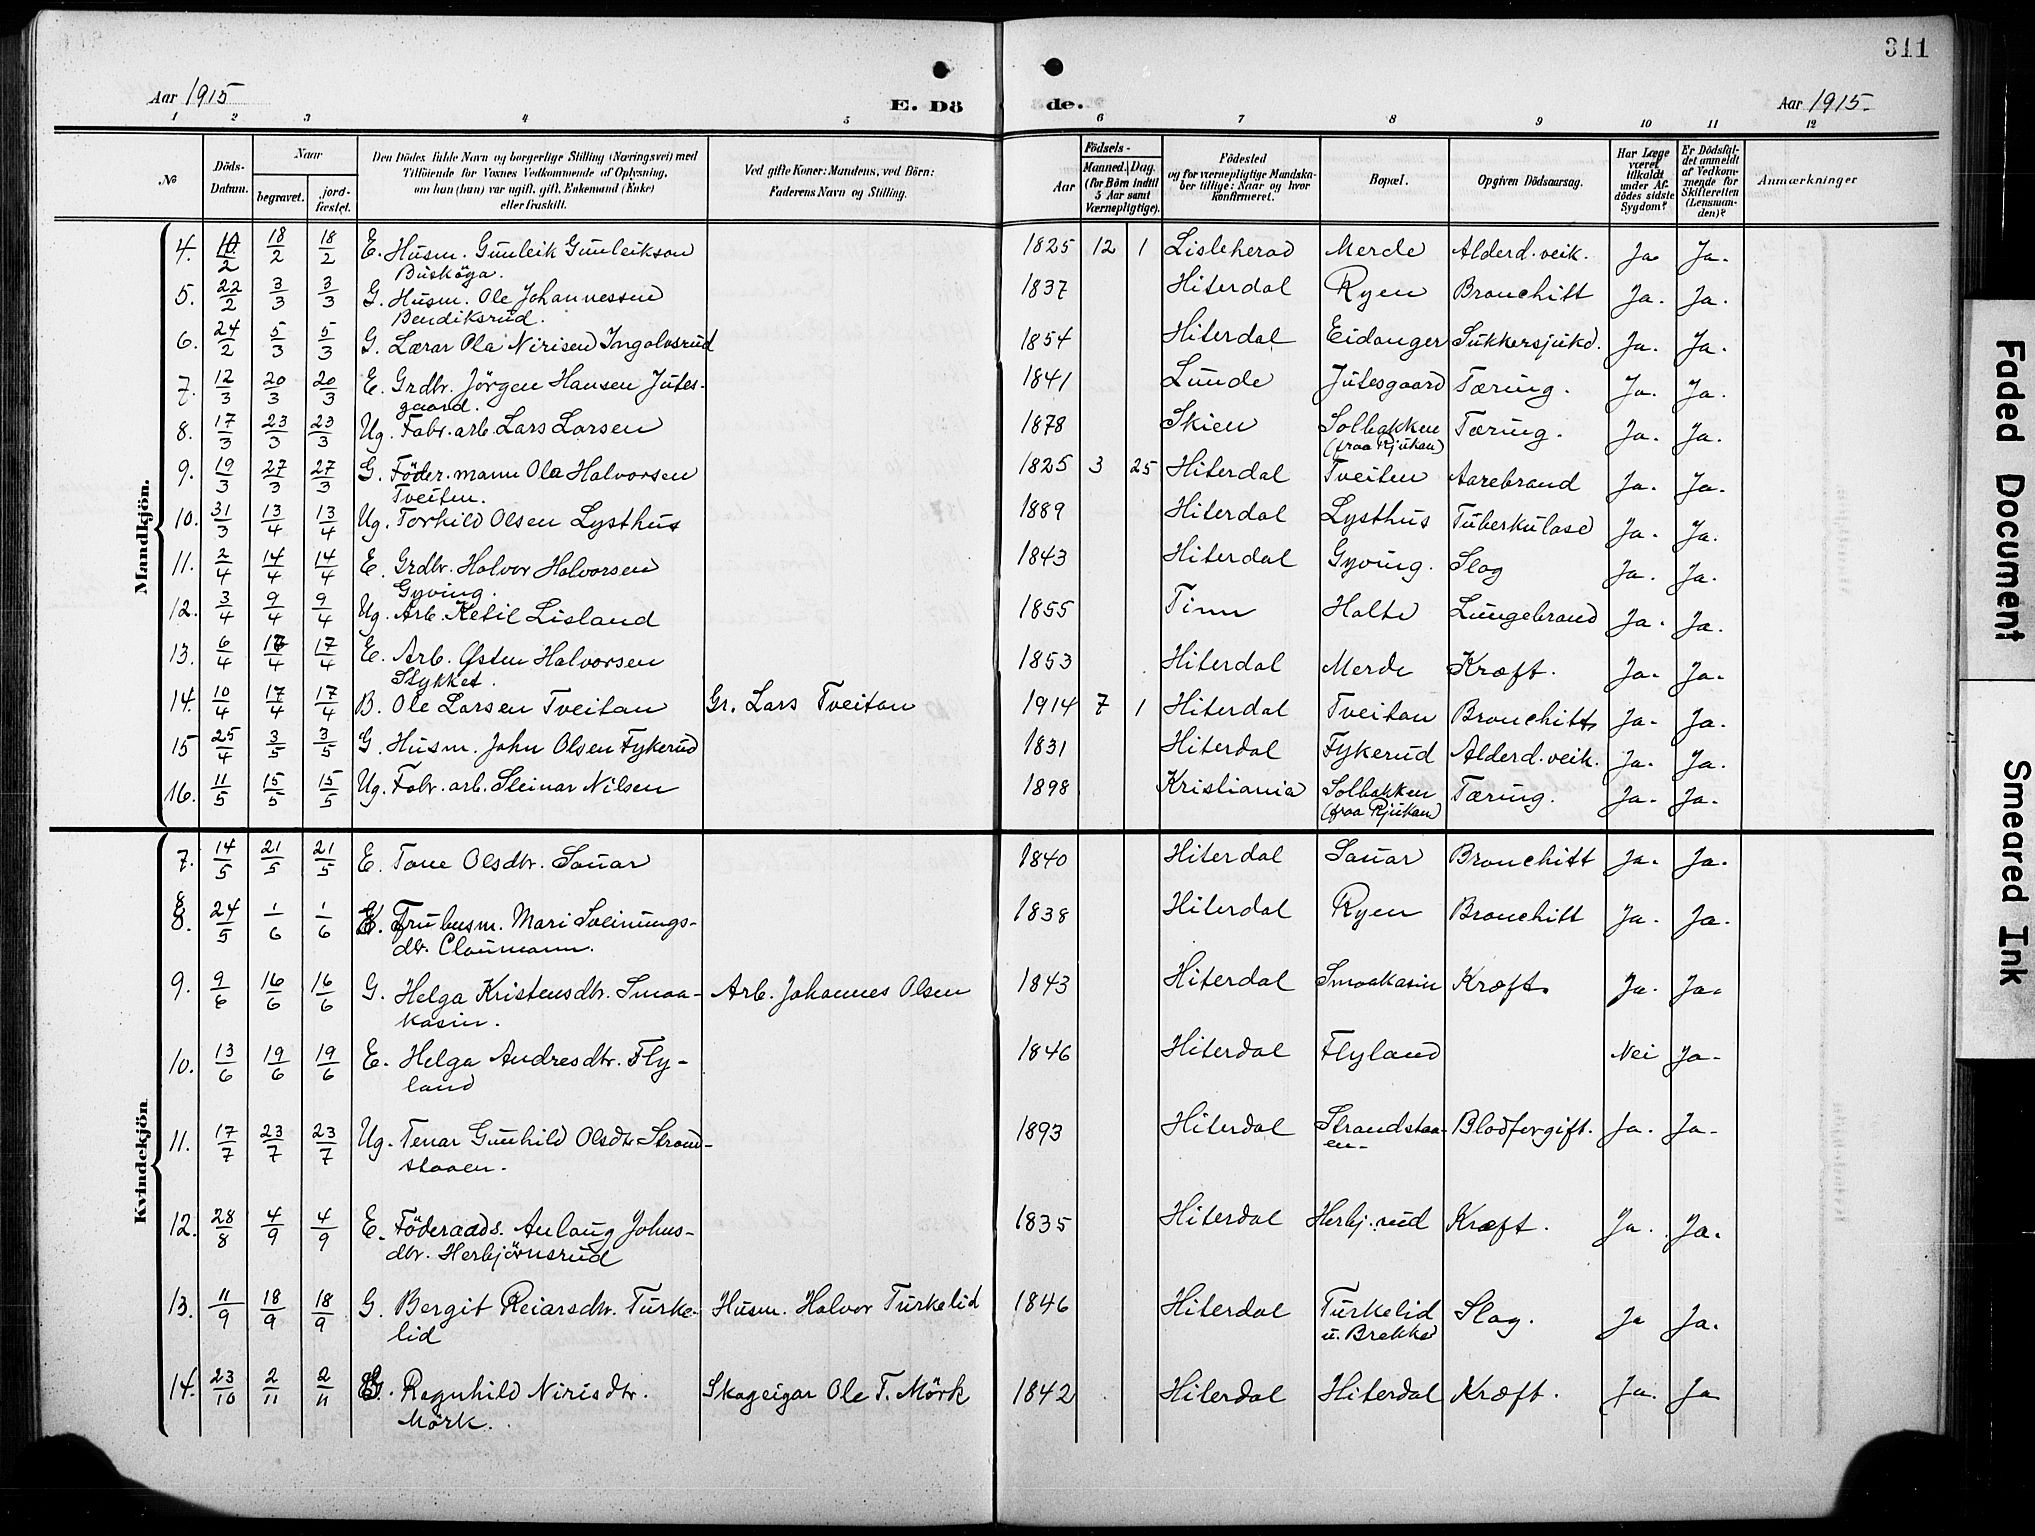 311
Aar 1915 E. Dö de. Aar 1915.
1 2 3 4 5 6 7 8 9 10 11 12
№ Döds-Datum. Naar begravet. jordfæstet. Den Dödes fulde Navn og borgerlige Stilling (Næringsvei) med Tilföiende for Voxnes Vedkommende af Oplysning, om han (hun) var ugift, gift, Enkemand (Enke) eller fraskilt. Ved gifte Koner: Mandens, ved Börn: Faderens Navn og Stilling. Födsels- Aar Maaned. Dag. (for Börn indtil 5 Aar samt Værnepligtige). Födested og for værnepligtige Mandskaber tillige: Naar og hvor konfirmeret. Bopæl. Opgiven Dödsaarsag. Har Læge været tilkaldt under Afdödes sidste Sygdom? Er Dödsfaldet anmeldt af Vedkommende for Skifteretten (Lensmanden)? Anmærkninger
Mandkjön.
4. 10/2 18/2 18/2 E. Husm. Gunleik Gunleikson Busköya. 1825 12 1 Lisleherad Merde Alderd.veik. Ja. Ja.
5. 22/2 3/3 3/3 G. Husm. Ole Johannessen Bendiksrud. 1837 Hiterdal Ryen Bronchitt Ja. Ja.
6. 24/2 5/3 5/3 G. Lærar Ola Nirisen Ingolvsrud 1854 Hiterdal Eidanger Sukkersjukd. Ja. Ja.
7. 12/3 20/3 20/3 E. Grdbr. Jörgen Hansen Jutesgaard. 1841 Lunde Jutesgaard Tæring. Ja. Ja.
8. 17/3 23/3 23/3 Ug. Fabr.arb. Lars Larsen 1878 Skien Solbakken (fraa Rjukan) Tæring. Ja. Ja.
9. 19/3 27/3 27/3 G. Föder.mann Ola Halvorsen Tveiten. 1825 3 25 Hiterdal Tveiten Aarebrand Ja. Ja.
10. 31/3 13/4 13/4 Ug. Torkild Olsen Lysthus 1889 Hiterdal Lysthus Tuberkulose Ja. Ja.
11. 2/4 14/4 14/4 E. Grdbr. Halvor Halvorsen Gyving. 1843 Hiterdal Gyving. Slag Ja. Ja.
12. 3/4 9/4 9/4 Ug. Arb. Ketil Lisland 1855 Tinn Holte Lungebrand Ja. Ja.
13. 6/4 17/4 17/4 E. Arb. Østen Halvorsen Stykket. 1853 Hiterdal Merde Kræft. Ja. Ja.
14. 10/4 17/4 17/4 B. Ole Larsen Tveitan Gr. Lars Tveitan 1914 7 1 Hiterdal Tveitan Bronchitt Ja. Ja.
15 25/4 3/5 3/5 G. Husm. John Olsen Fykerud 1831 Hiterdal Fykerud Alderd.veik. Ja. Ja.
16. 11/5 15/5 15/5 Ug. Fabr.arb. Steinar Nilsen 1898 Kristiania Solbakken (fraa Rjukan) Tæring. Ja. Ja.
Kvindekjön
7. 14/5 21/5 21/5 E. Tone Olsdtr. Sauar 1840 Hiterdal Sauar Bronchitt Ja. Ja.
8. 24/5 1/6 1/6 E. Fru husm. Mari Sveinungsdtr. Claumann. 1838 Hiterdal Ryen Bronchitt Ja. Ja.
9. 9/6 16/6 16/6 G. Helga Kristensdtr. Smaakasin. Arb. Johannes Olsen 1843 Hiterdal Smaakasin Kræft. Ja. Ja.
10. 13/6 19/6 19/6 E. Helga Andresdtr. Flyland 1846 Hiterdal Flyland Nei Ja.
11. 17/7 23/7 23/7 Ug. Tenar Gunhild Olsdtr Strandstaaen. 1893 Hiterdal Strandstaaen. Blodforgift. Ja. Ja.
12. 28/8 4/9 4/9 E. Föderaads. Anlaug Johnsdtr. Herbjörnsrud 1835 Hiterdal Herbj.rud Kræft. Ja. Ja.
13. 11/9 18/9 18/9 G. Bergit Reiarsdtr. Turkelid Husm. Halvor Turkelid 1846 Hiterdal Turkelid u. Brekke Slag. Ja Ja.
14. 23/10 2/11 2/11 G. Ragnhild Nirisdtr. Mörk. Skogeigar Ole T. Mörk 1842 Hiterdal Hiterdal Kræft. Ja. Ja
Faded Document
Smeared Ink